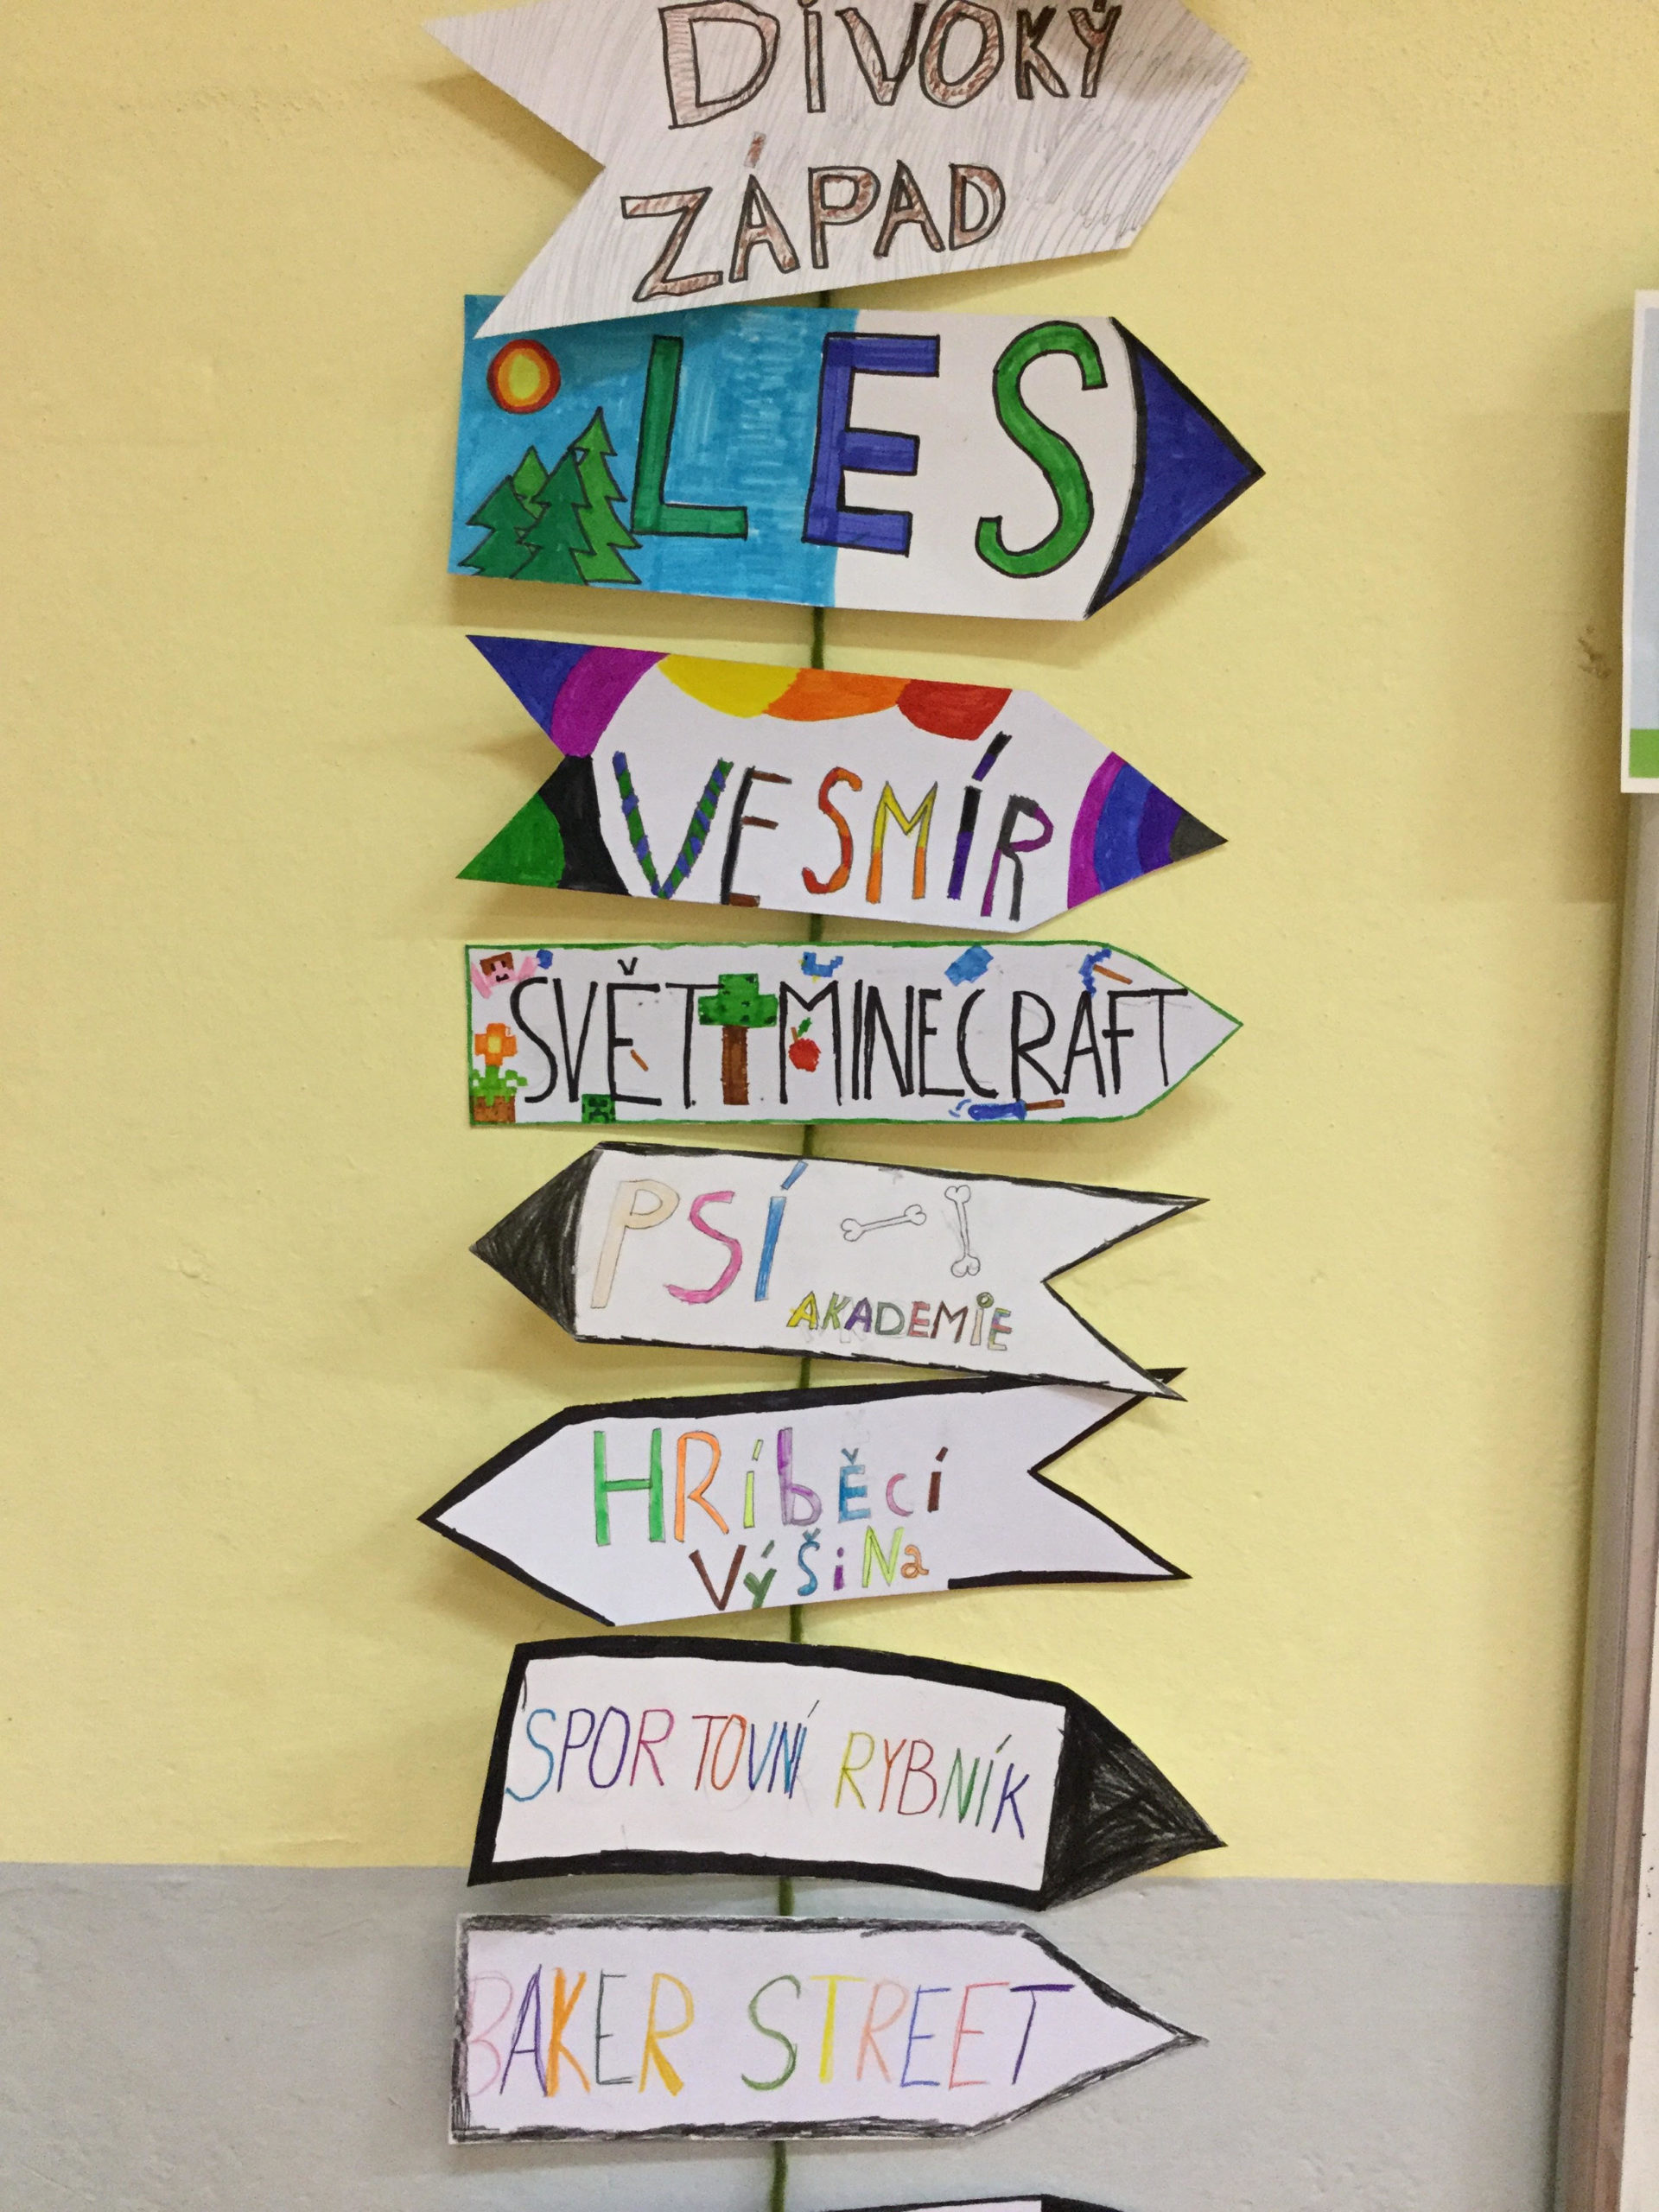 DIVOKÝ
ZÁPAD
LES
VESMÍR
SVĚT MINECRAFT
PSÍ
AKADEMIE
HRíbĚcí
VýŠiNa
SPORTOVNÍ RYBNÍK
BAKER STREET